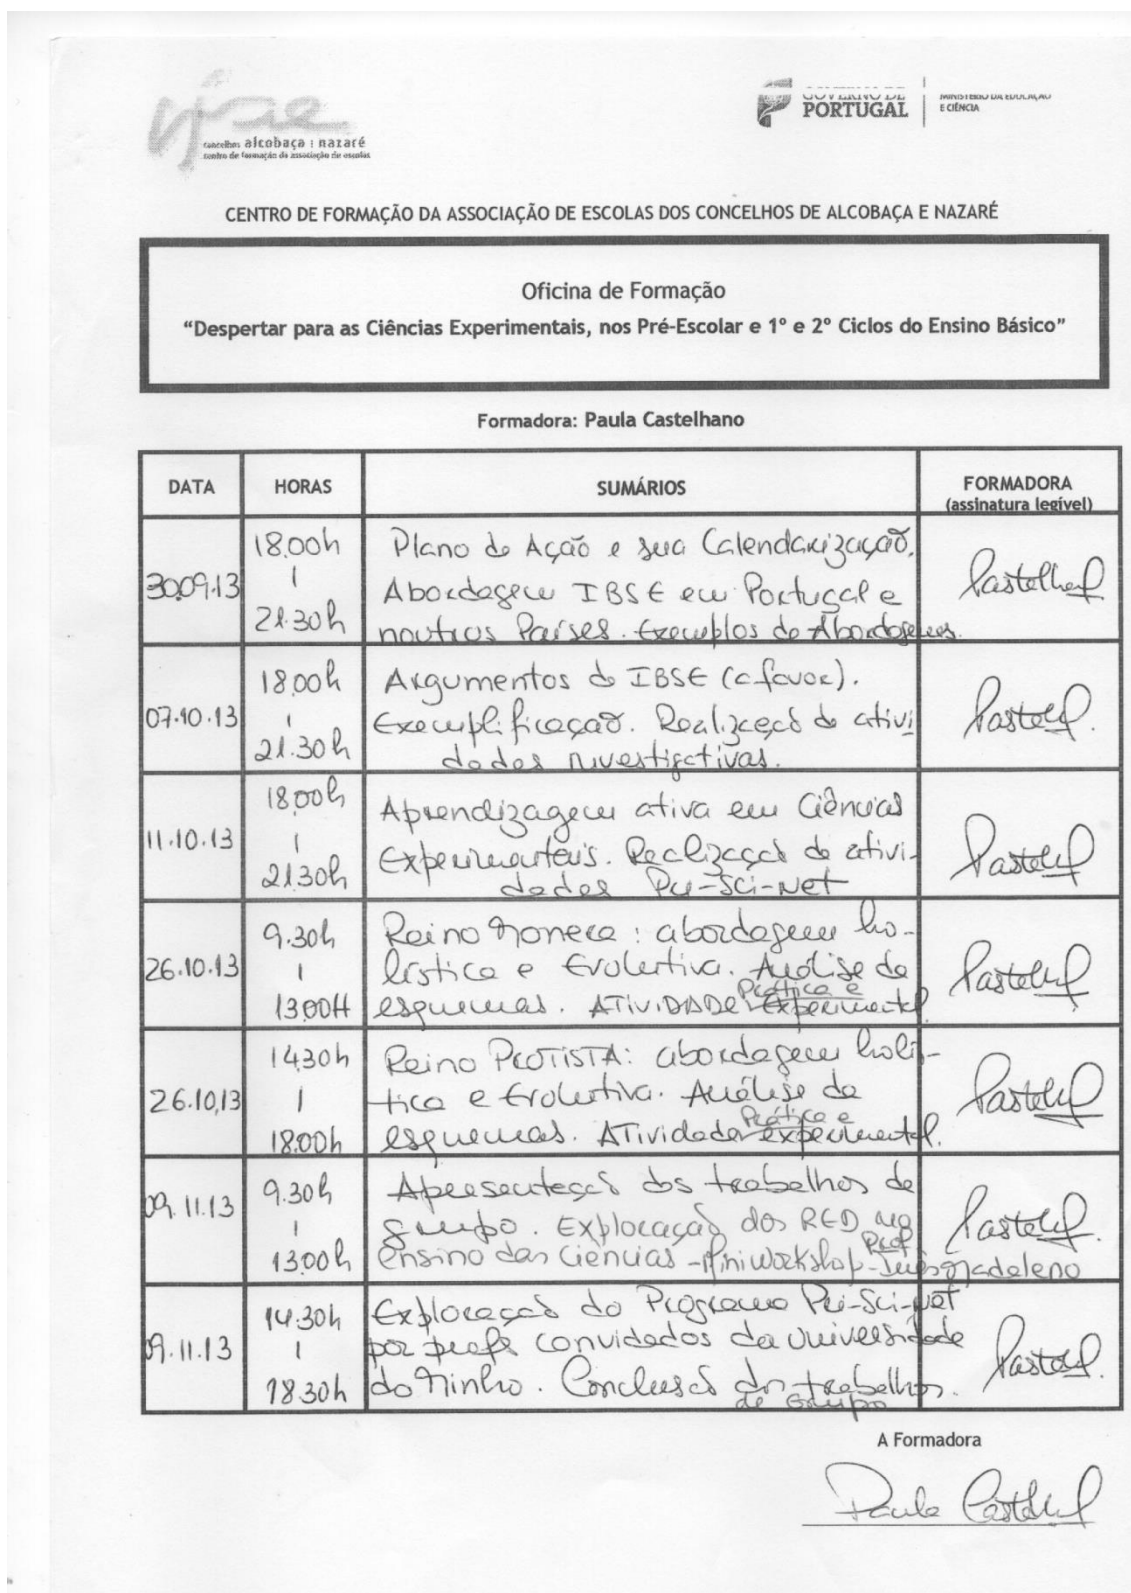 concelhos alcobaça | nazaré
centro de formação da associação de escolas
GOVERNO DE
PORTUGAL
MINISTÉRIO DA EDUCAÇÃO
E CIÊNCIA
CENTRO DE FORMAÇÃO DA ASSOCIAÇÃO DE ESCOLAS DOS CONCELHOS DE ALCOBAÇA E NAZARÉ
Oficina de Formação
“Despertar para as Ciências Experimentais, nos Pré-Escolar e 1º e 2º Ciclos do Ensino Básico”
Formadora: Paula Castelhano
DATA HORAS SUMÁRIOS FORMADORA
(assinatura legível)
30.09.13 18.00h - 21.30h
Plano de Ação e sua Calendarização.
Abordagem IBSE em Portugal e
noutros Países. Exemplos de Abordagens.
07.10.13 18.00h - 21.30h
Argumentos do IBSE (a favor).
Exemplificação. Realização de ativi
dades investigativas.
11.10.13 18.00h - 21.30h
Aprendizagem ativa em Ciências
Experimentais. Realização de ativi-
dades Pri-Sci-Net
26.10.13 9.30h - 13.00H
Reino Monera: abordagem ho-
lística e Evolutiva. Análise de
esquemas. ATIVIDADE Prática e Experimental
26.10.13 14.30h - 18.00h
Reino PROTISTA: abordagem holís-
tica e Evolutiva. Análise de
esquemas. ATividade Prática e experimental.
09.11.13 9.30h - 13.00h
Apresentação dos trabalhos de
grupo. Exploração dos RED no
ensino das Ciências - Mini workshop - Prof Inês Madaleno
09.11.13 14.30h - 18.30h
Exploração do Programa Pri-Sci-Net
por profs convidados da Universidade
do Minho. Conclusão dos trabalhos
de Grupo.
A Formadora
Paula Castelhano